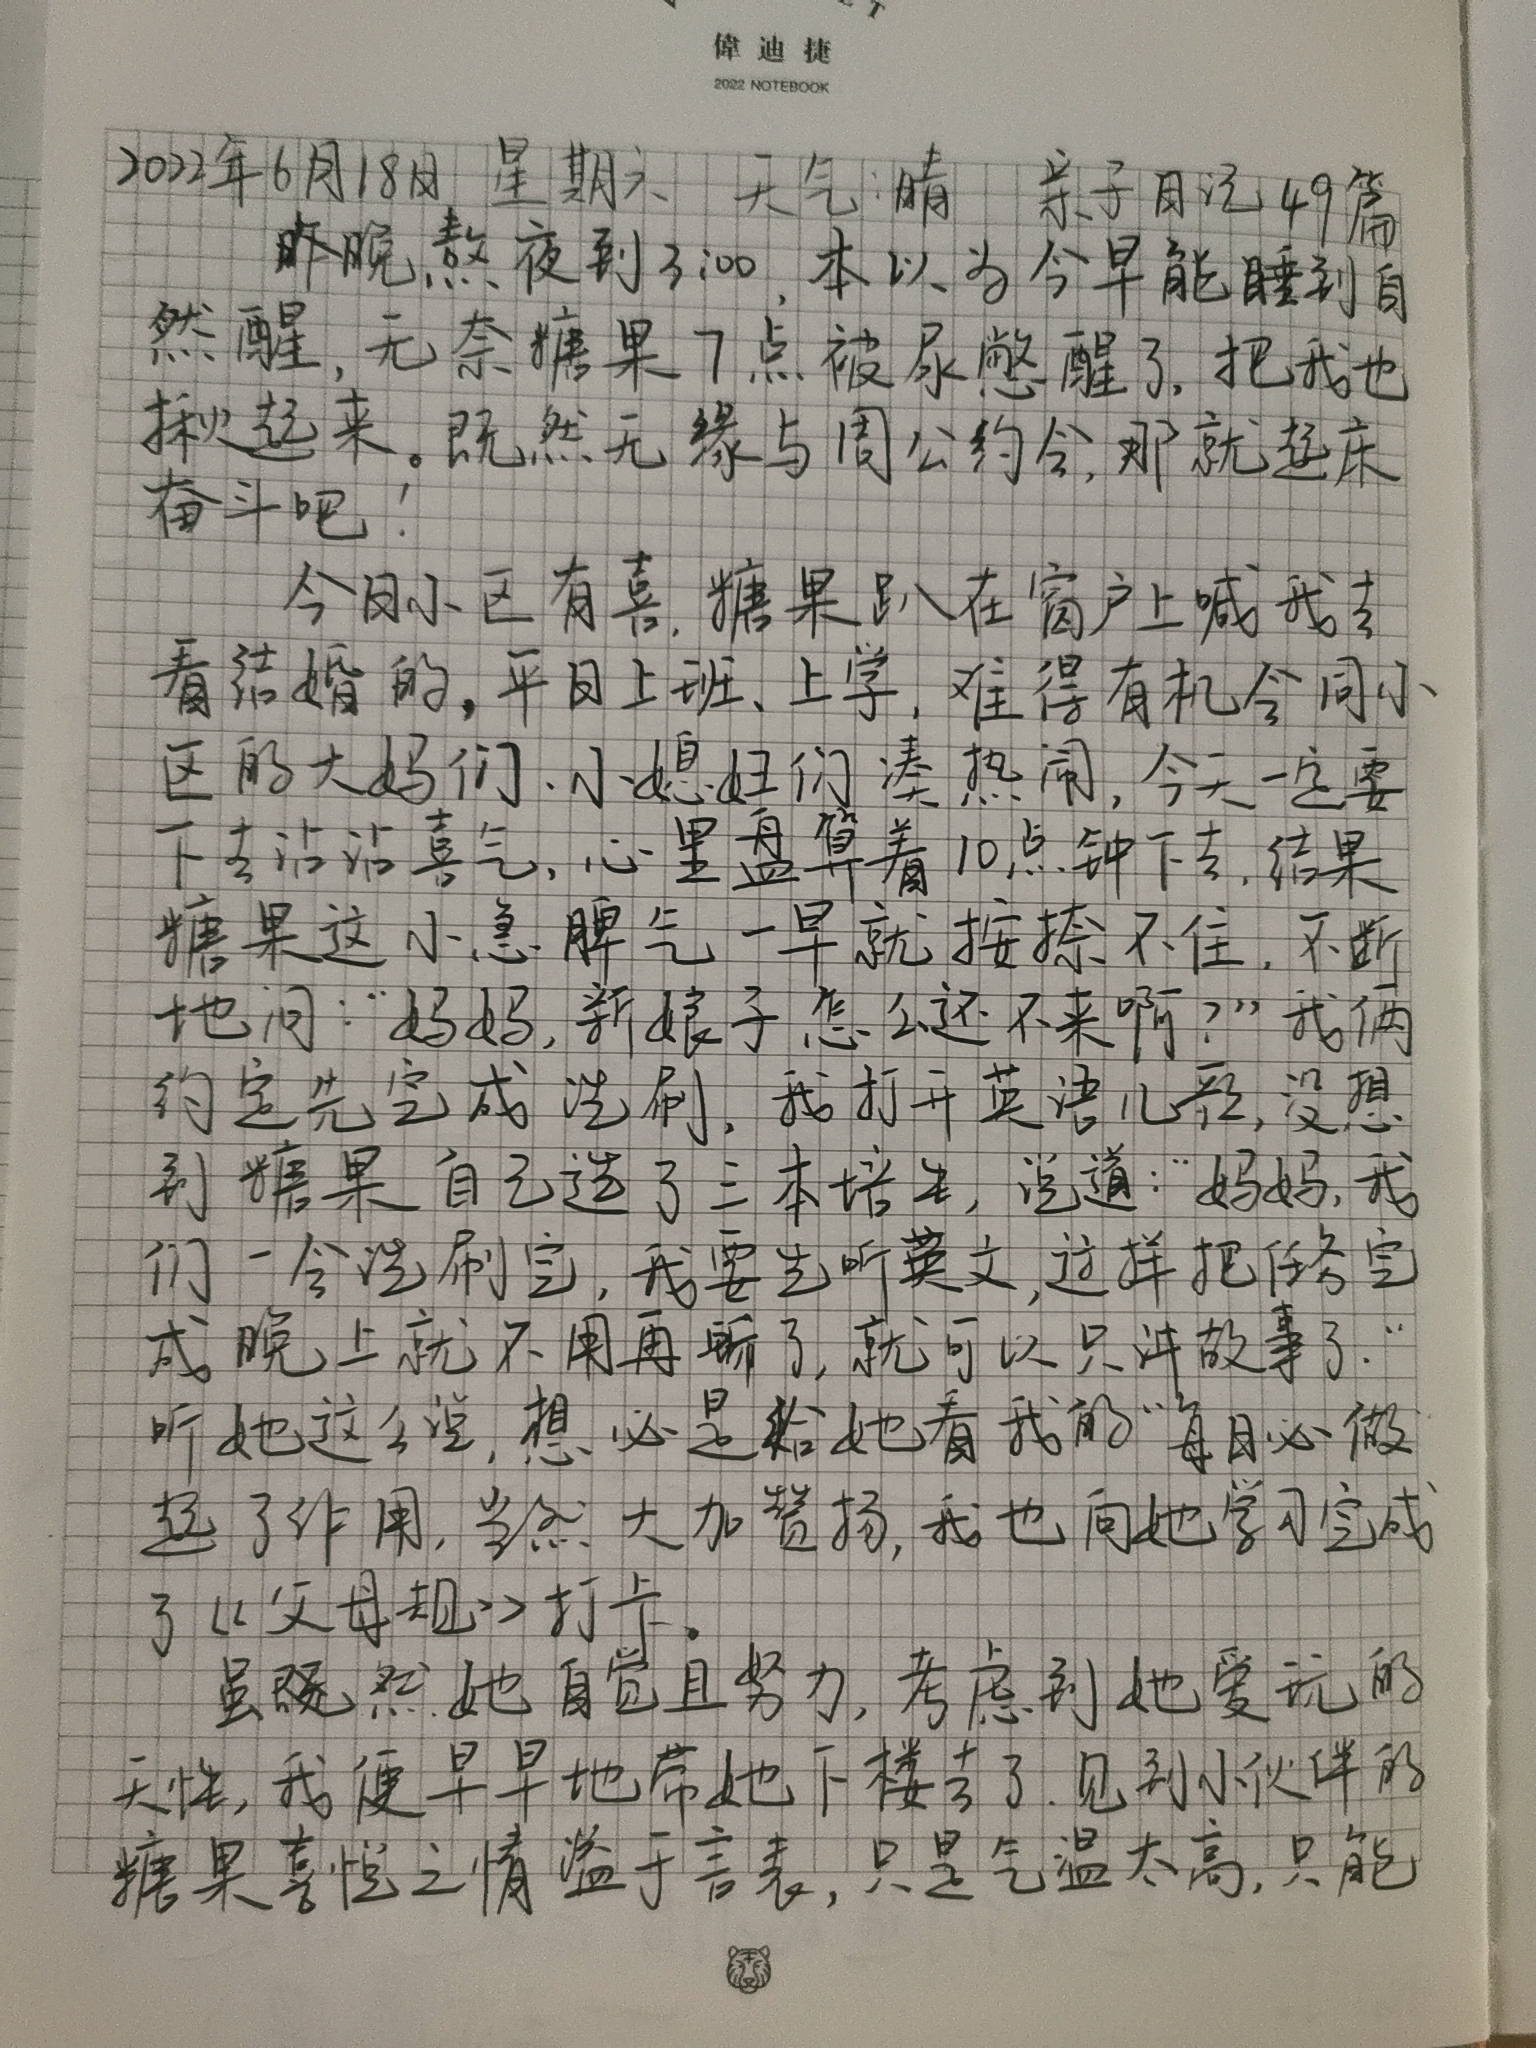 偉迪捷
2022 NOTEBOOK
2022年6月18日 星期六 天气:晴 亲子日记49篇
昨晚熬夜到3:00,本以为今早能睡到自
然醒,无奈糖果7点被尿憋醒了,把我也
揪起来。既然无缘与周公约会,那就起床
奋斗吧!
今日小区有喜,糖果趴在窗户上喊我去
看结婚的,平日上班、上学,难得有机会同小
区的大妈们、小媳妇们凑热闹,今天一定要
下去沾沾喜气,心里盘算着10点钟下去,结果
糖果这小急脾气一早就按捺不住,不断
地问:“妈妈,新娘子怎么还不来啊?”我俩
约定先完成洗刷,我打开英语儿歌,没想
到糖果自己选了三本培生,说道:“妈妈,我
们一会洗刷完,我要先听英文,这样把任务完
成晚上就不用再听了,就可以只讲故事了.”
听她这么说,想必是给她看我的“每日必做
起了作用,当然大加赞扬,我也向她学习完成
了《父母规》打卡。
虽既然她自觉且努力,考虑到她爱玩的
天性,我便早早地带她下楼去了.见到小伙伴的
糖果喜悦之情溢于言表,只是气温太高,只能